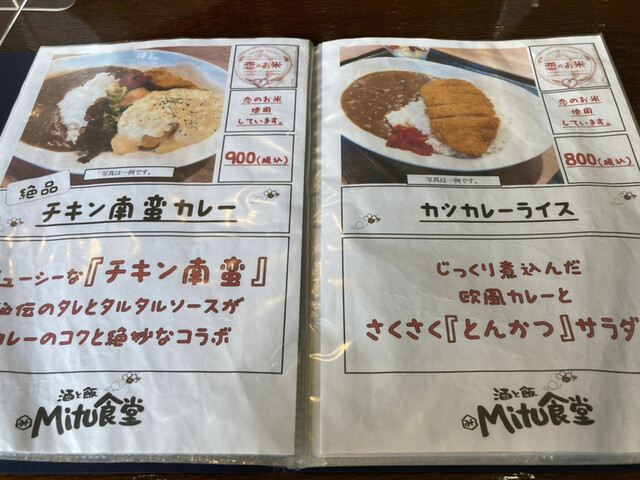 恋のお米
恋のお米
使用
しています。
900(税込)
写真は一例です。
絶品
チキン南蛮カレー
ューシーな『チキン南蛮』
伝のタレとタルタルソースが
カレーのコクと絶妙なコラボ
酒と飯
み Mitu食堂
恋のお米
恋のお米
使用
しています。
800(税込)
写真は一例です。
カツカレーライス
じっくり煮込んだ
欧風カレーと
さくさく『とんかつ』サラダ
酒と飯
み Mitu食堂